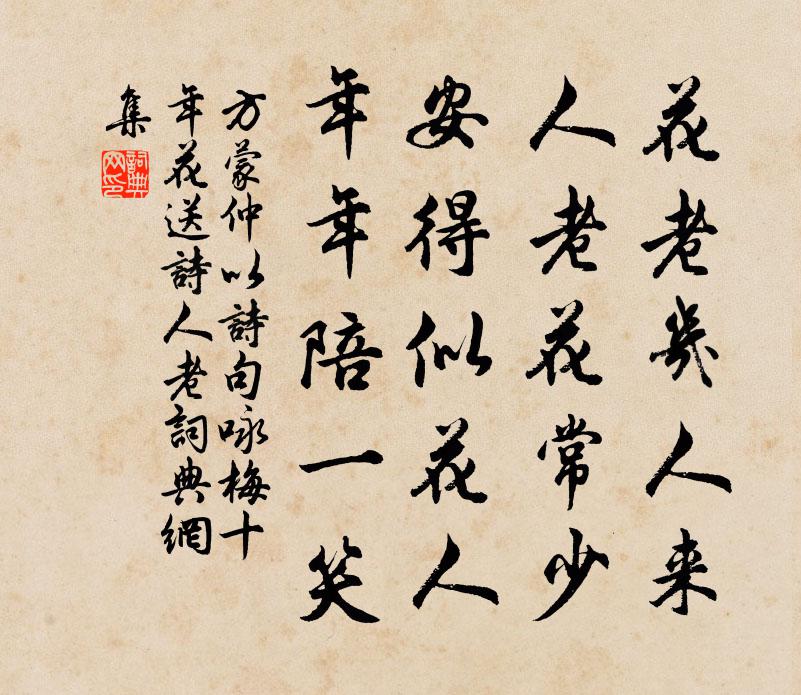 花老幾人来
人老花常少
安得似花人
年年陪一笑
方蒙仲以詩句咏梅十
年花送詩人老詞典網
集
詞典网印